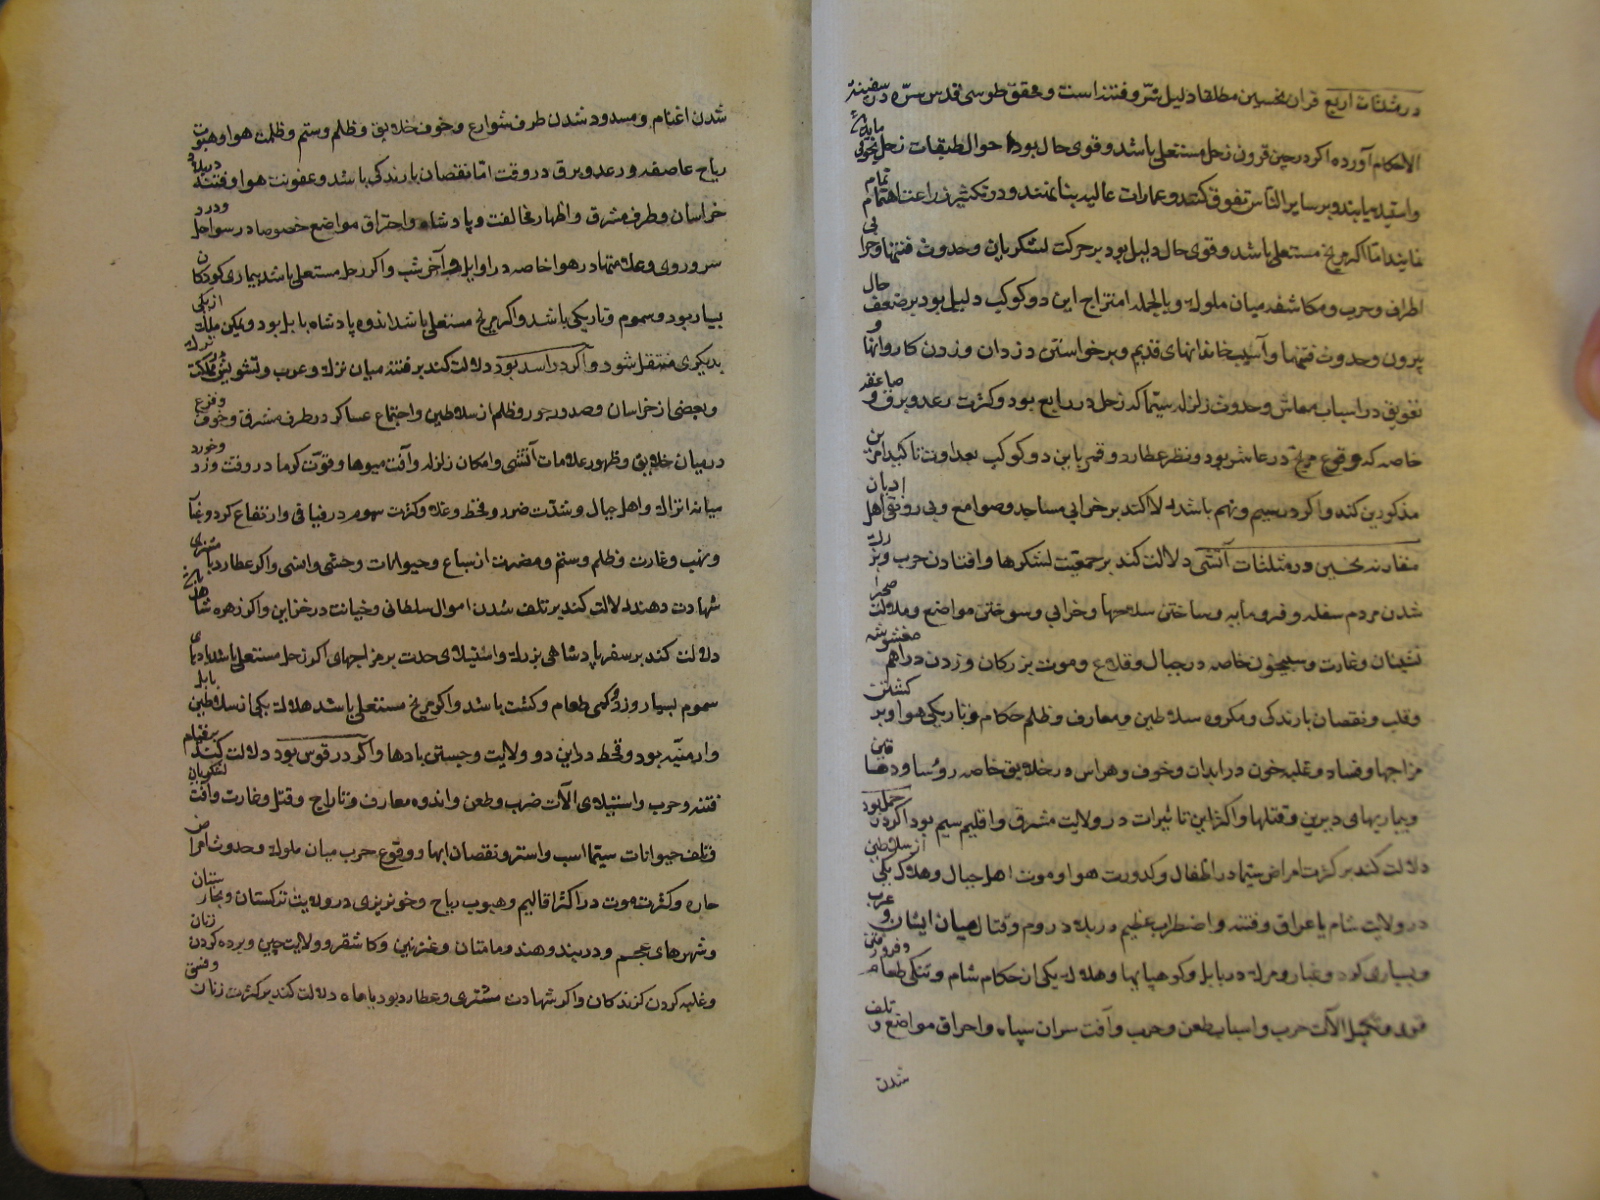 در مثلثات اربع قران نحسین مطلقا دلیل شر و فتنه است و محقق طوسی قدس سره در سفینة
الاحکام آورده اکر در حین قرون زحل مستعلی باشد و قوی حال بود احوال طبقات زحل
و بر سایر الناس تفوق کنند و عمارات عالیه بنا نمنند و در تکثیر زراعت اهتمام تمام
نمایند اما اکر مریخ مستعلی باشد و قوی حال دلیل بود بر حرکت لشکریان و حدوث فتنها و خرابی
اطراف و حرب و مکاشفه میان ملوک و بالجمله امتزاج این دو کوکب دلیل بود بر ضعف حال
پیرون و حدوث فتنها و آسیب خاندانهای قدیم و برخواستن دزدان و زدن کاروانها و
تعویق در اسباب معاش و حدوث زلزله سیما که زحل در رابع بود و کثرت رعد و برق و صاعقه
خاصه که وقوع مریخ در عاشر بود و نظر عطارد و قمر باین دو کوکب بعداوت تاکید امر
مذکورین کند و اکر در سیم و نهم باشد دلالت کند بر خرابی مساجد و صوامع و بی رونقی اهل ادیان
مقارنه نحسین در مثلثات آتشی دلالت کند بر جمعیت لشکرها و افتادن حرب و بزرک
شدن مردم سفله و فرومایه و ساختن سلاحها و خرابی و سوختن مواضع و ملالت صحرا
نشینان و غارت و شبیخون خاصه در جبال و قلاع و موت بزرکان و زدن دراهم مغشوشه
و قلب و نقصان بارندکی و مکروه سلاطین و معارف و ظلم حکام و تاریکی هوا و بر کشتن
مزاجها و فساد و غلبه خون در ابدان و خوف و هراس در خلایق خاصه روسا و دهاقین
و بیماریهای دیرین و قتلها و اکثر این تاثیرات در ولایت مشرق و اقلیم سیم بود اکر در حمل بود
دلالت کند بر کثرت امراض سیما در اطفال و کدورت هوا و موت اهل جبال و هلاک یکی از سلاطین
در ولایت شام یا عراق و فتنه و اضطراب عظیم در بلاد روم و قتال میان ایشان و عرب
و بسیاری کرد و غبار و مرک در بابل و کوهپایها و هلاک یکی از حکام شام و تنکی طعام
و تکمیل آلات حرب و اسباب طعن و حرب و آفت سران سپاه و احراق مواضع و تلف
شدن
شدن اغنام و مسدود شدن طرف شوارع و خوف خلایق و ظلم و ستم و ظلمت هوا و هبوب
ریاح عاصفه و رعد و برق در وقت اما نقصان بارندکی باشد و عفونت هوا و فتنه در بلاد
خراسان و طرف مشرق و اظهار مخالفت و پادشاه و احتراق مواضع خصوصا در سواحل و درد
سر و روی و علامتها در هوا خاصه در اوایل و آخر شب و اکر زحل مستعلی باشد بیماری کودکان
بسیار بود و سموم و تاریکی باشد و اکر مریخ مستعلی باشد اندوه پادشاه بابل بود و لیکن ملک از یکی
بدیکری منتقل شود و اکر در اسد بود دلالت کند بر فتنه میان ترک و عرب و تشویش مملکت ترک
و بعضی از خراسان و صدور جور و ظلم از سلاطین و اجتماع عساکر در طرف مشرق و خوف و فزع
در میان خلایق و ظهور علامات آتشی و امکان زلزله و آفت میوها و قوت کرما در وقت و زد و خورد
میانه اتراک و اهل جبال و شدت ضرر و قحط و غلا و کثرت سموم در فیافی و ارتفاع کرد و غبار
و نهب و غارت و ظلم و ستم و مضرت از سباع و حیوانات وحشی و انسی و اکر عطارد با مشتری
شهادت دهند دلالت کند بر تلف شدن اموال سلطانی و خیانت در خزاین و اکر زهره شاهد
دلالت کند بر سفر پادشاهی بزرک و استیلای حدت بر مزاجهای اکر زحل مستعلی باشد
سموم بسیار وزد و کمی طعام و کشت باشد و اکر مریخ مستعلی باشد هلاک یکی از سلاطین بابل
و ارمنیه بود و قحط در این دو ولایت و جستن بادها و اکر در قوس بود دلالت کند بر قیام
فتنه و حرب و استیلای آلات ضرب و طعن و اندوه معارف و تاراج و قتل و غارت و آفت لشکریان
و تلف حیوانات سیما اسب و استر و نقصان ابها و وقوع حرب میان ملوک و حدوث امراض
حاره و کثرت موت در اکثر اقالیم و هبوب ریاح و خونریزی در ولایت ترکستان و
و شهرهای عجم و دربند و هند و مامتان و غزنین و کاشغر و ولایت چین و برده کردن زنان
و غلبه کردن کزندکان و اکر شهادت مشتری و عطارد بود با ماه دلالت کند بر کثرت زنان و فسق